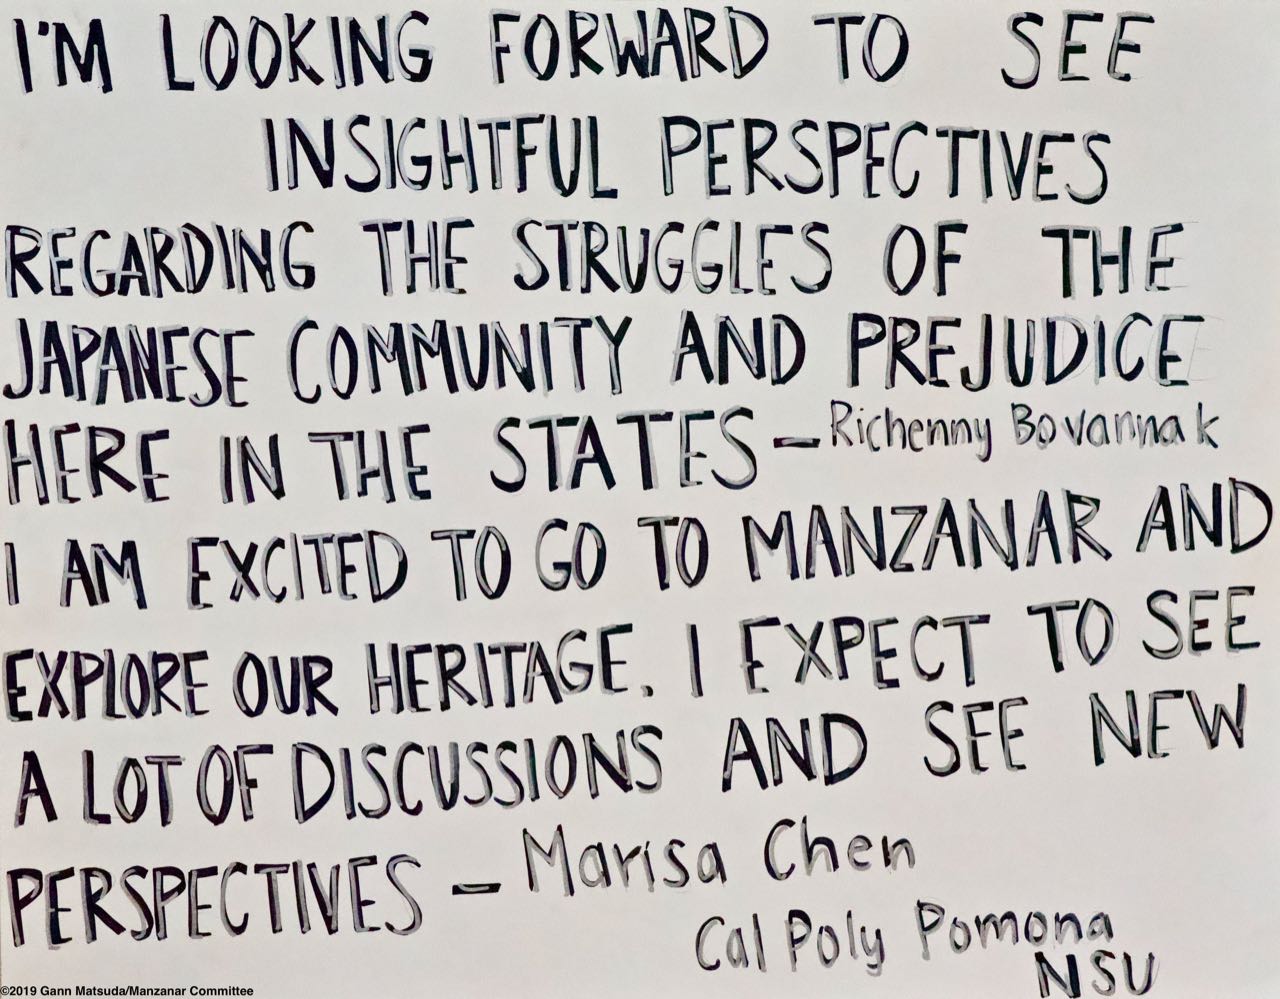 I'M LOOKING FORWARD TO SEE
INSIGHTFUL PERSPECTIVES
REGARDING THE STRUGGLES OF THE
JAPANESE COMMUNITY AND PREJUDICE
HERE IN THE STATES - Richenny Bovannak
I AM EXCITED TO GO TO MANZANAR AND
EXPLORE OUR HERITAGE. I EXPECT TO SEE
A LOT OF DISCUSSIONS AND SEE NEW
PERSPECTIVES - Marisa Chen
Cal Poly Pomona
NSU
©2019 Gann Matsuda/Manzanar Committee